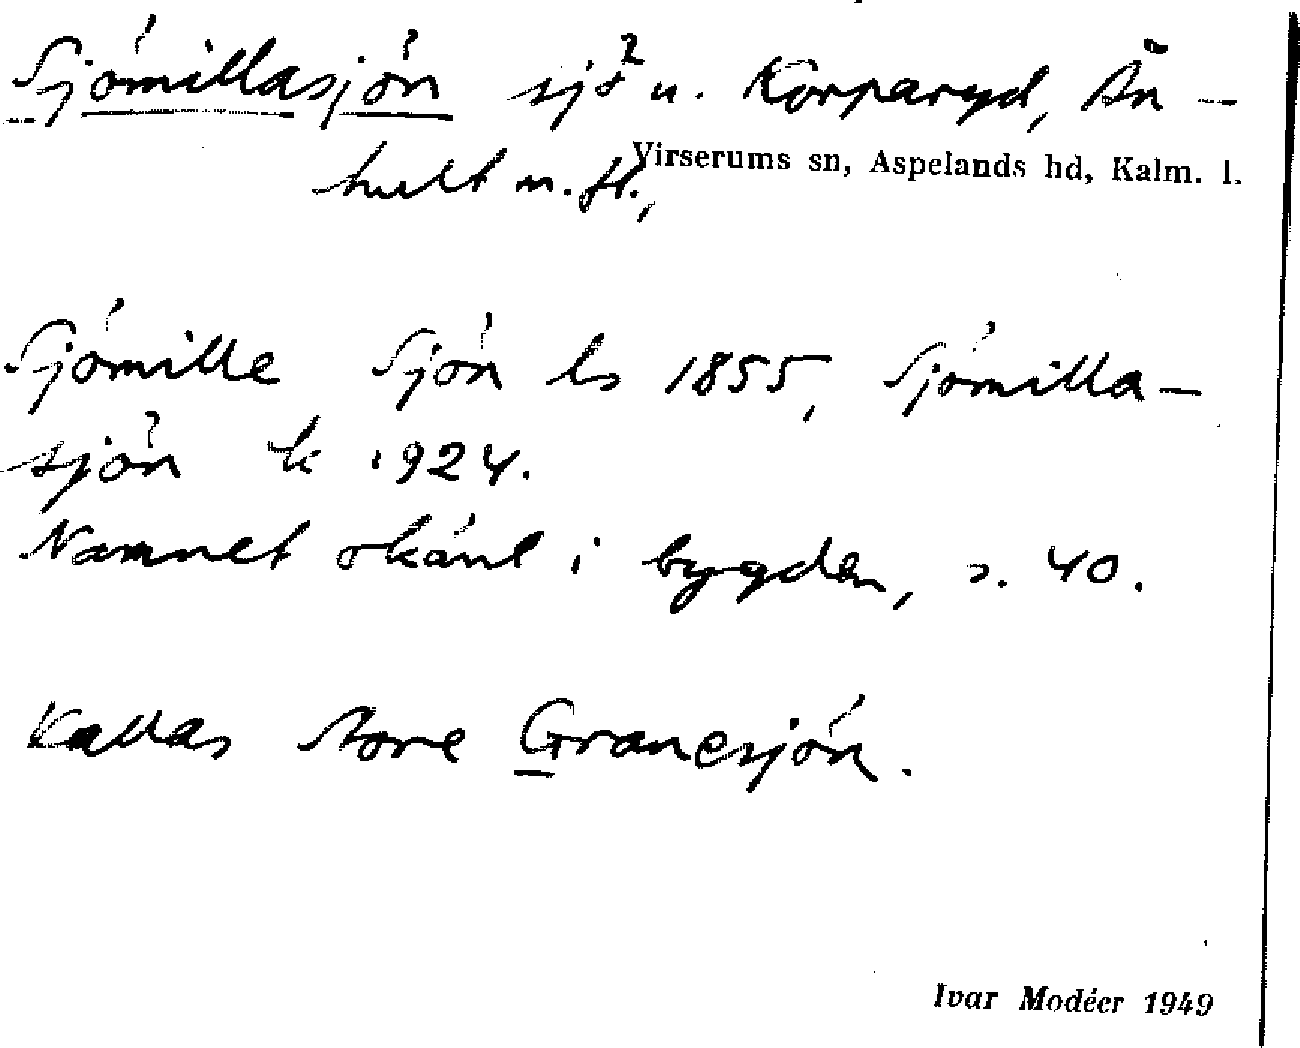 Sjömillasjön sjö u. Korparyd, Än-
hult m. fl.,
Virserums sn, Aspelands hd, Kalm. l.
Sjömille Sjön ls 1855, Sjömilla-
sjön k 1924.
Namnet okänt i bygden, s. 40.
Kallas Store Granesjön.
Ivar Modéer 1949